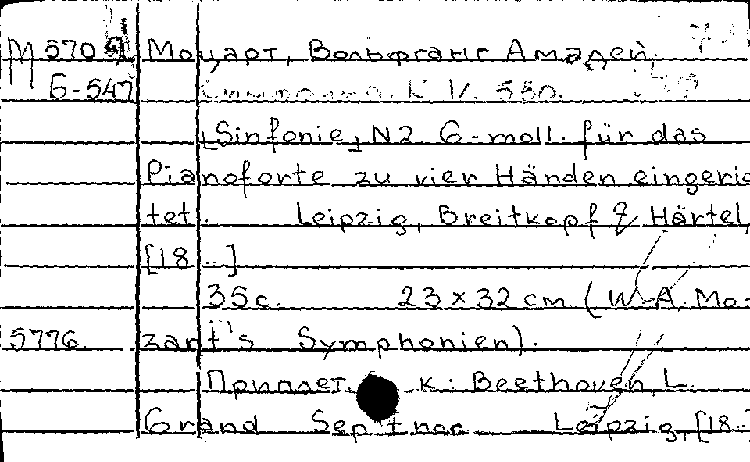 М 570 Моцарт, Вольфганг Амадей,
Б-547 K. V. 550.
[Sinfonie] N2 G-moll. für das
Pianoforte zu vier Händen eingerich
tet. Leipzig, Breitkopf & Härtel,
[18..]
35с. 23 x 32 cm (W. A. Mo-
5776. zart's Symphonien).
Приплет. к: Beethoven, L.
Grand Leipzig, [18..